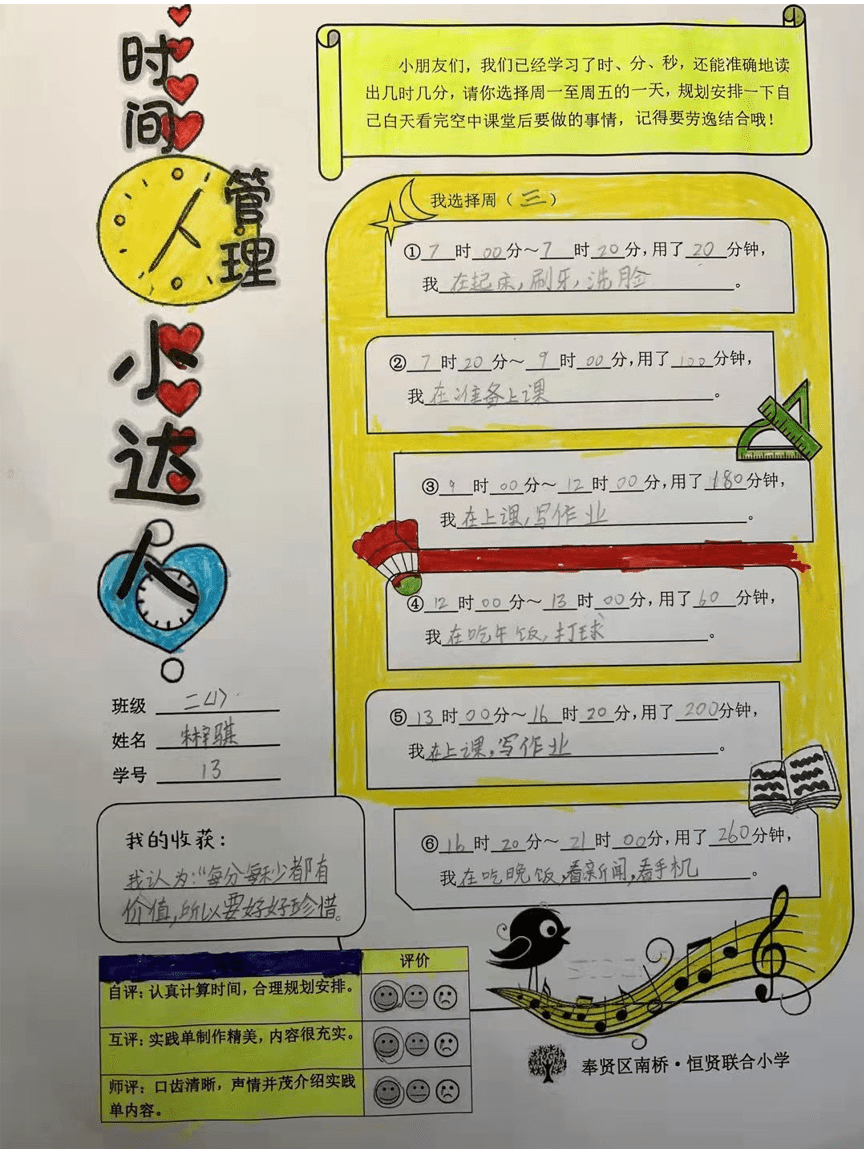 时间
管理
小达人
小朋友们，我们已经学习了时、分、秒，还能准确地读
出几时几分，请你选择周一至周五的一天，规划安排一下自
己白天看完空中课堂后要做的事情，记得要劳逸结合哦！
我选择周（三）
①7时00分～7时20分，用了20分钟，
我在起床，刷牙，洗脸。
②7时20分～9时00分，用了100分钟，
我在准备上课。
③9时00分～12时00分，用了180分钟，
我在上课，写作业。
④12时00分～13时00分，用了60分钟，
我在吃午饭，打球。
⑤13时00分～16时20分，用了200分钟，
我在上课，写作业。
⑥16时20分～21时00分，用了260分钟，
我在吃晚饭，看新闻，看手机。
班级 二(1)
姓名 骐
学号 13
我的收获：
我认为：“每分每秒都有
价值，所以要好好珍惜。
评价
自评：认真计算时间，合理规划安排。
互评：实践单制作精美，内容很充实。
师评：口齿清晰，声情并茂介绍实践
单内容。
奉贤区南桥·恒贤联合小学